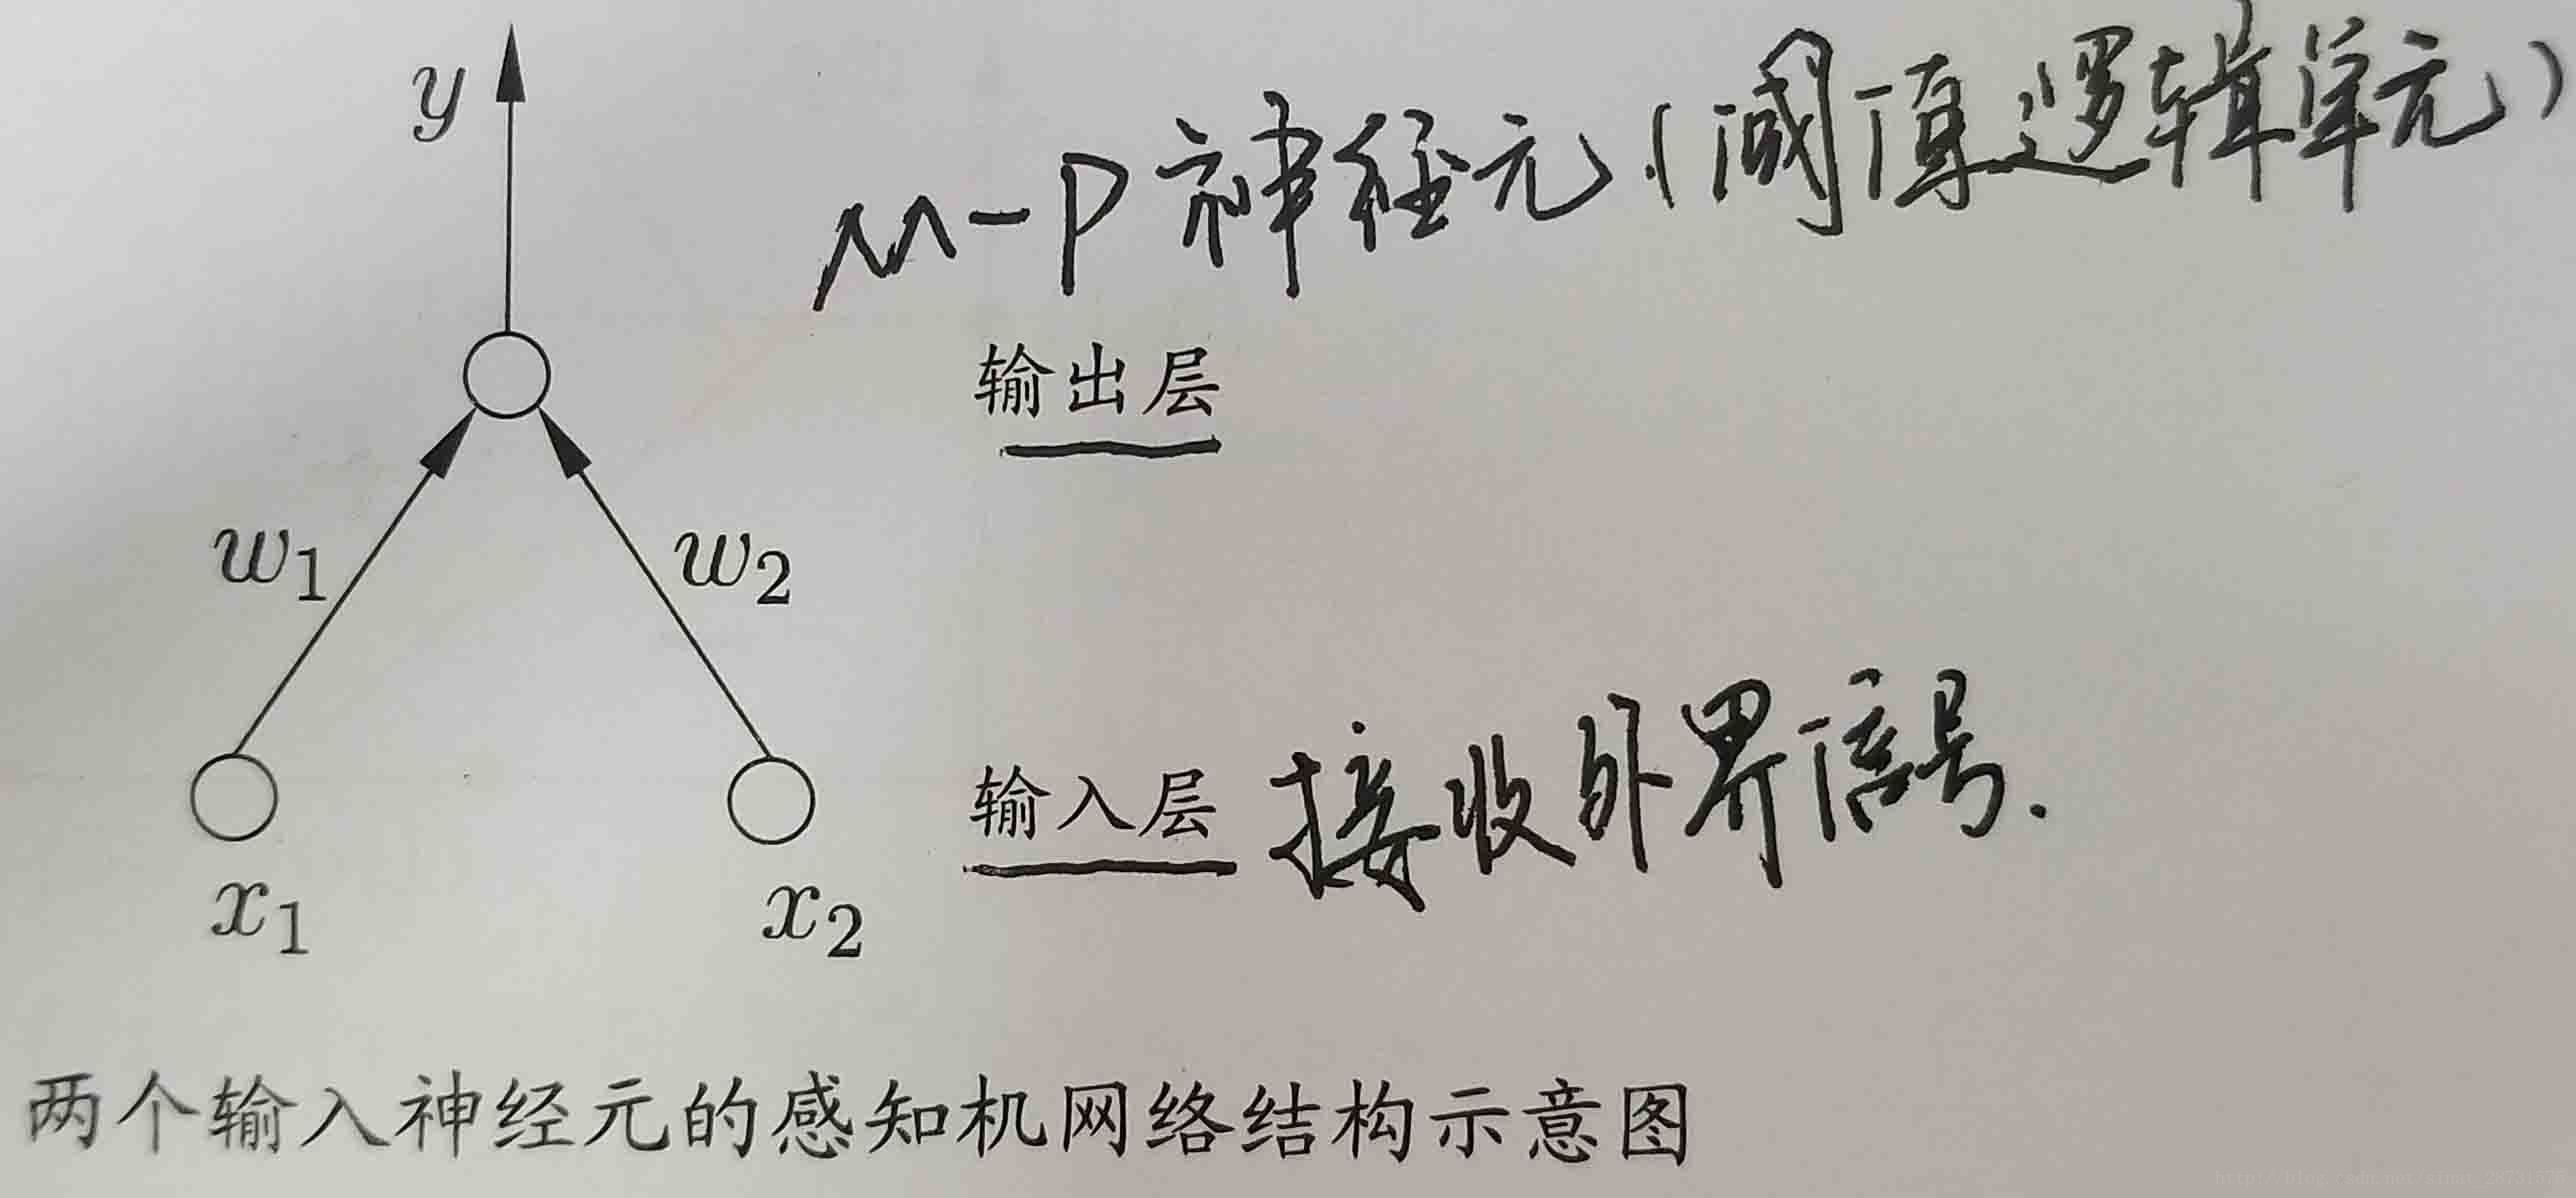 y
M-P神经元(阈值逻辑单元)
输出层
w1 w2
输入层 接收外界信号.
x1 x2
两个输入神经元的感知机网络结构示意图